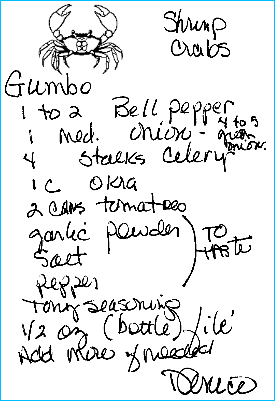 Shrimp
Crabs
Gumbo
1 to 2 Bell pepper
1 med. onion - 4 to 5 green onion.
4 stalks Celery
1 c okra
2 cans tomatoes
garlic powder
Salt
pepper
TO TASTE
Tony seasoning
1/2 oz (bottle) file'
Add more if needed